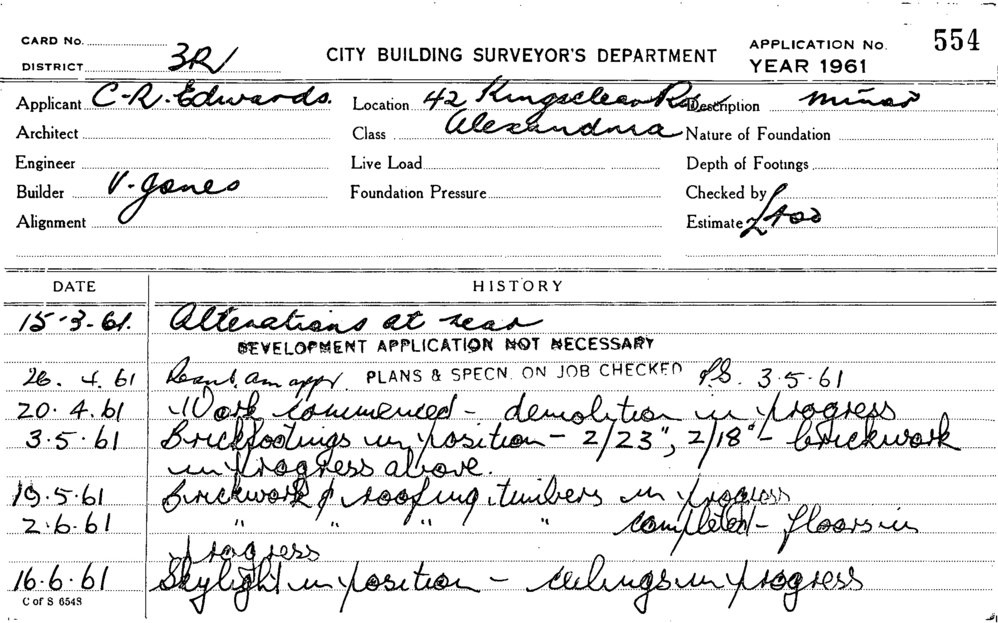 CARD No.
DISTRICT 3R
CITY BUILDING SURVEYOR'S DEPARTMENT
APPLICATION No. 554
YEAR 1961
Applicant C-R. Edwards. Location 42 Kingsclear Rd Description minor
Architect Class Alexandria Nature of Foundation
Engineer Live Load Depth of Footings
Builder V. Jones Foundation Pressure Checked by
Alignment Estimate £400
DATE HISTORY
15-3-61. Alterations at rear
DEVELOPMENT APPLICATION NOT NECESSARY
26. 4. 61 PLANS & SPECN. ON JOB CHECKED 3·5·61
20. 4. 61 Work commenced - demolition in progress
3·5·61 Brickfootings in position - 2/23", 2/18" - brickwork
in progress above.
19·5·61 Brickwork & roofing timbers in progress
2·6·61 " " " " completed - floors in
progress
16·6·61 Skylight in position - ceilings in progress
C of S 6548